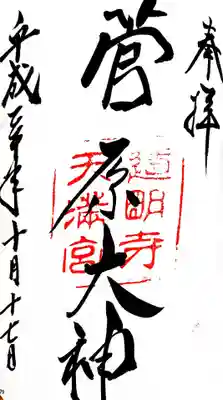 奉拝
菅原大神
道明寺
天満宮
平成 年十月十七日